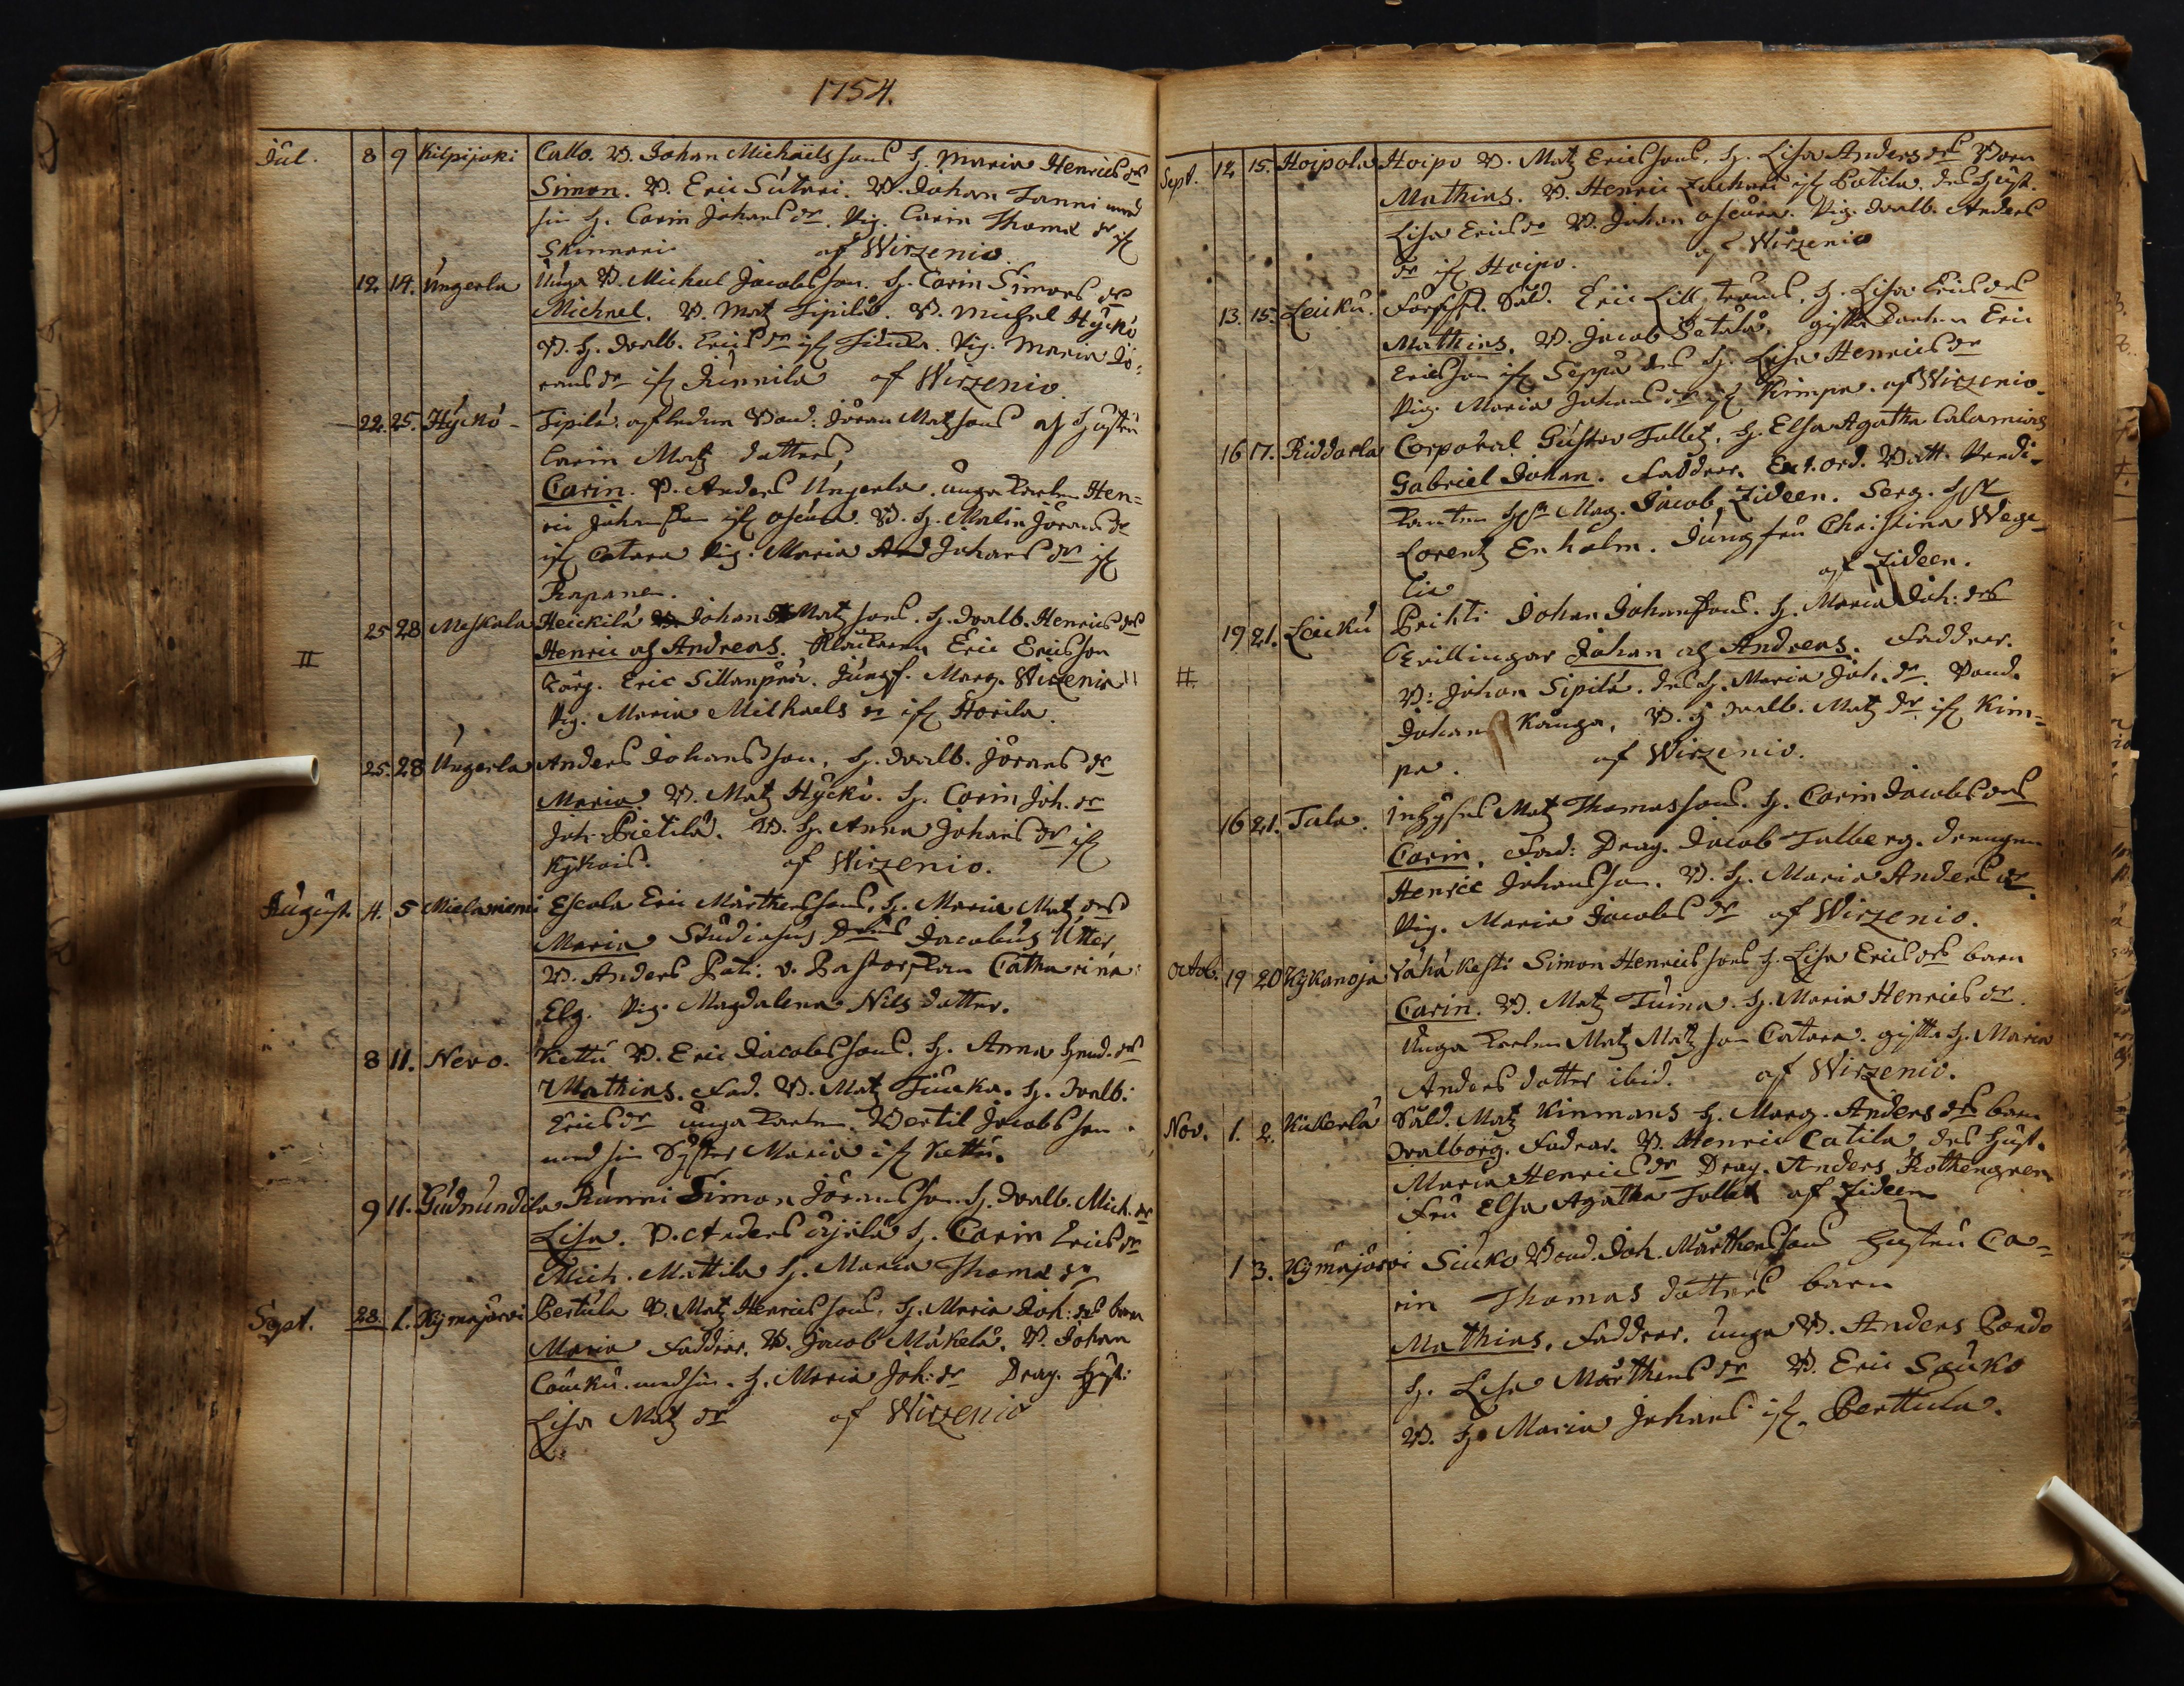 1754.
Jul. 8 9 Kilpijoki Callo. B. Johan Michäels sons H. Maria Henrics dr
Simon. B. Eric Sutari. B. Johan Tanni med
sin H. Carin Johans dr. Pig. Carin Thomæ dr if
Skinnari af Wirzenio.
12. 14. Ungerla Unga B. Michel Jacobsson. H. Carin Simons dr
Michael. B. Mat Sipilä. B. Michel Hyckö
B. H. Walb. Erics dr if. Pig. Maria Jö-
rans dr if Junnila af Wirzenio.
22. 25. Hyckö Sipilä. Bond. Jöran Matz sons hustru
Carin Matz datters,
Carin. B. Anders Ungerla. unga Karlen Hen-
ric Johansson if. B. H. Malin Jörans dr
if Catara Pig. Maria Johans dr if
Rapane.
25 28 Meskala Heickilä Johan Matz sons. H. Walb. Henrics drs
II Henric och Andreas. Klockaren Eric Ericsson
Eric Sillanpää. Jungf. Marg. Wirzenia
Pig. Maria Michaels dr if Horila.
25. 28 Ungerla Anders Johansson, H. Walb. Jörans dr
Maria. B. Matz Hyckö. H. Carin Joh. dr
Joh. Pietilä. B. H. Anna Johans dr if
Kykois. af Wirzenio.
August. 4. 5 Mielaniemi Escola Eric Mårthens sons, H. Maria Matz drs
Maria Studiosus Jacobus Utter
B. Anders Pati. v. Pastorskan Catharina
Elg. Pig. Magdalena Nils datter.
8 11. Nevo. Kettu B. Eric Jacobs sons. H. Anna Hend. drs
Mathias. Fad. B. Mat Tiucka. H. Walb.
Erics dr unga Karlen Bertil Jacobsson
med sin Syster Maria if Kettu.
9 11. Gudnundila Runni Simon Jöransson H. Walb. Mich. dr
Lisa. B. Anders Äijälä H. Carin Erics dr
Mich. Mattila H. Maria Thomæ dr
Sept. 28. 1. Kymäjärvi Bertula B. Matz Henrics sons, H. Maria Joh: drs barn
Maria Faddrar. B. Jacob Mäkelä. B. Johan
Caucku. med sin H. Maria Joh: dr Drag. Hust:
Lisa Matz dr af Wirzenio
Sept. 12 15. Hoipola Hoipo B. Matz Erics sons, H. Lisa Anders drs Barn
Mathias. B. Henric Zachari if Catila. des Hust.
Lisa Erics dr B. Johan. Pig. Walb. Anders
dr if Hoipo. af Wirzenio
13. 15. Leicku. Sold. Eric Lilltrauds, H. Lisa Erics drs
Mathias. B. Jacob Ketälä. gifta Karlen Eric
Ericsson if Seppä des H. Lisa Henrics dr
Pig. Maria Johans dr if Kimpa. af Wirzenio.
16 17. Riddarla Corporal Gustav Follet, H. Elsa Agatha Calamias
Gabriel Johan. Faddrar. Ext. ord. Batt. Predi-
kanten Mag. Jacob Zideen. Serg.
Lorentz Enholm. Jungfru Christina Wege-
lia af Zideen.
19 21. Leicku Prihti Johan Johanssons. H. Maria Joh: drs
# Tvillingar Johan och Andreas. Faddrar.
B: Johan Sipilä. des H. Maria Joh. dr. Bond.
Johan Kånga, B. H Walb. Matz dr if Kim-
pa. af Wirzenio.
16 21. Tula. inhyses Matz Thomassons. H. Carin Jacobs drs
Carin. Fad: Drag. Jacob Talberg. drengen
Henric Johansson. B. H. Maria Anders dr.
Pig. Maria Jacobs dr af Wirzenio.
Octob. 19 20 Kykanoja Vähäkesti Simon Henrics sons H. Lisa Erics drs barn
Carin. B. Matz Tuina. H. Maria Henrics dr.
Unga Karlen Matz Matz son Catara. gifta H. Maria
Anders datter ibid. af Wirzenio.
Nov. 1. 2. Kukerla Sold. Matz Kinmans H. Marg. Anders drs barn
Walborg. Fadrar. B. Henric Catila, des Hust.
Maria Henrics dr Drag. Anders Rothengren
Fru Elsa Agatha Follet af Zideen
1 3. Kymäjärvi Siuko Bond. Joh. Mårthenssons hustru Ca-
rin Thomas datters barn
Mathias. Faddrar. Unga B. Anders Pando
H. Lisa Mårthens dr B. Eric Sauko
B. H. Maria Johans if. Berttula.